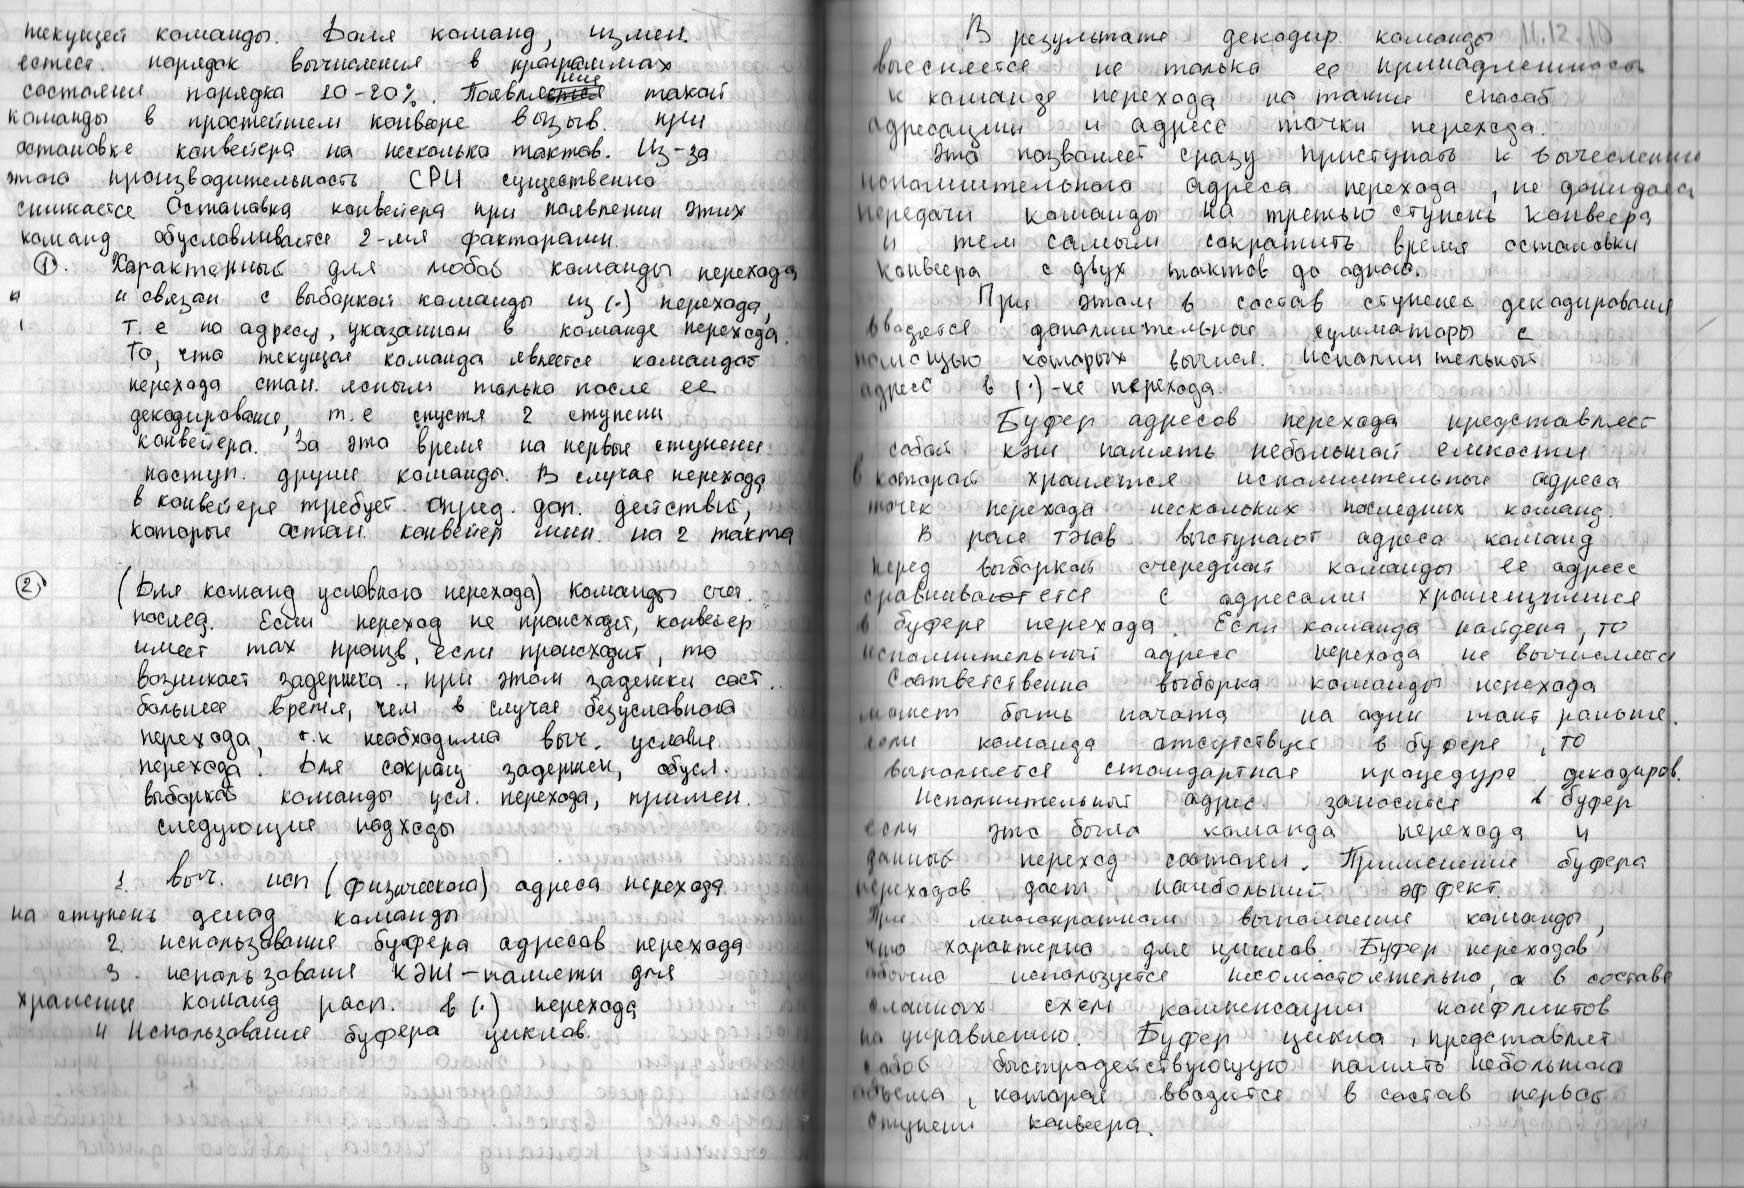 текущей команды. Доля команд, измен.
естест. порядок вычисления в программах
состовляет порядка 10-20%. Появление такой
команды в простейшем конвеере вызыв. при
остановке конвейера на несколько тактов. Из-за
этого производительность CPU существенно
снижается Остановка конвейера при появлении этих
команд обуславливается 2-мя факторами.
①. Характерный для любой команды перехода
и связан с выборкой команды из (·) перехода,
т.е по адресу, указанном в команде перехода.
То, что текущая команда является командой
перехода стан. ясным только после ее
декодирование, т.е спустя 2 ступени
конвейера. За это время на первые ступени
поступ. другие команды. В случае перехода
в конвейере требует. опред. доп. действий,
которые остан. конвейер мин. на 2 такта
② (Для команд условного перехода) команды счит.
послед. Если переход не происходит, конвейер
имеет max произв, если происходит, то
возникает задержка., при этом задежки сост..
большее время, чем в случае безусловного
перехода, т.к необходимо выч. условие
перехода. Для сокращ задержек, обусл.
выборкой команды усл. перехода, примен.
следующие подходы
1. выч. исп (физического) адреса перехода
на ступень декод команды
2. использование буфера адресов перехода
3. использование КЭШ-памяти для
хранение команд расп. в (·) перехода
4 Использование буфера циклов.
В результате декодир. команды 11.12.10
выесняется не только ее принадлежность
к команде перехода но также способ
адресации и адресс точки перехода.
Это позволяет сразу приступать к вычеслению
исполнительного адреса перехода, не дожидаясь
передачи команды на третью ступень конвеера
и тем самым сократить время остановки
конвеера с двух тактов до одного.
При этом в состав ступеней декодирования
вводятся дополнительные сумматоры с
помощью которых вычисл. исполнительный
адресс в (·)-ке перехода.
Буфер адресов перехода представляет
собой кэш память небольшой емкости
в которой хранятся исполнительные адреса
точек перехода нескольких последних команд.
В роле тэгов выступают адреса команд
перед выборкой очередной команды ее адресс
сравнивается с адресами хранящимися
в буфере перехода. Если команда найдена, то
исполнительный адресс перехода не вычисляется
Соответственно выборка команды перехода
может быть начата на один такт раньше.
если команда отсутствует в буфере, то
выполняется стандартная процедура декодиров.
Исполнительный адрес заносится в буфер
если это была команда перехода и
данный переход состоялся. Применение буфера
переходов дает наибольший эффект
При многократном выполнение команды,
что характерно для циклов. Буфер переходов
обычно используется несомостоятельно, а в составе
сложных схем компенсации конфликтов
по управлению. Буфер цикла представляет
собой быстродействующую память небольшого
объема, которая вводится в состав первой
ступени конвеера.